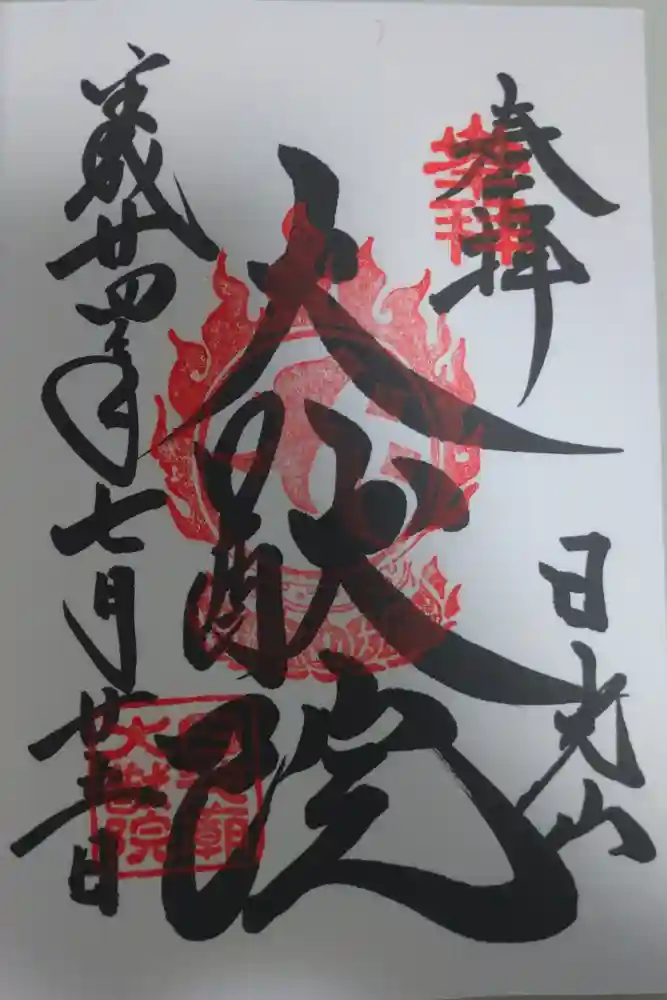 奉拝
日光山
大猷院
平成廿四年七月廿五日
奉拝
大猷院